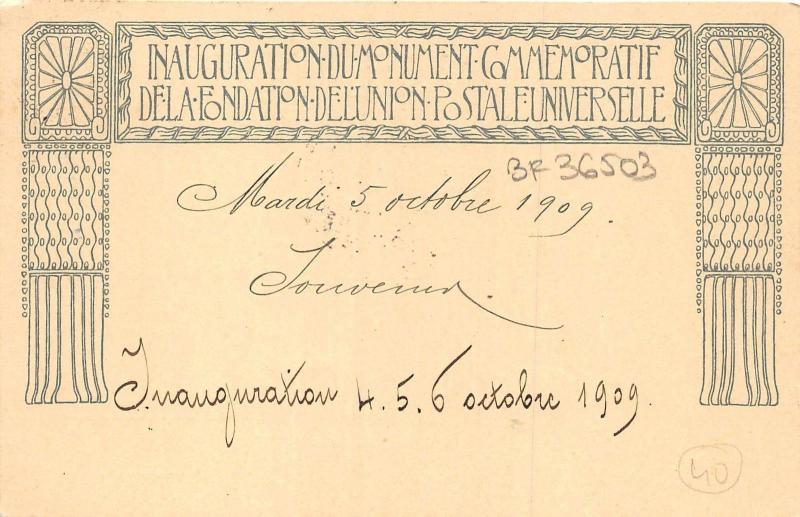 INAUGURATION·DU·MONUMENT·COMMEMORATIF
DE·LA·FONDATION·DE·L'UNION·POSTALE·UNIVERSELLE
BF 36503
Mardi 5 octobre 1909.
Souvenir
Inauguration 4. 5. 6 octobre 1909.
40